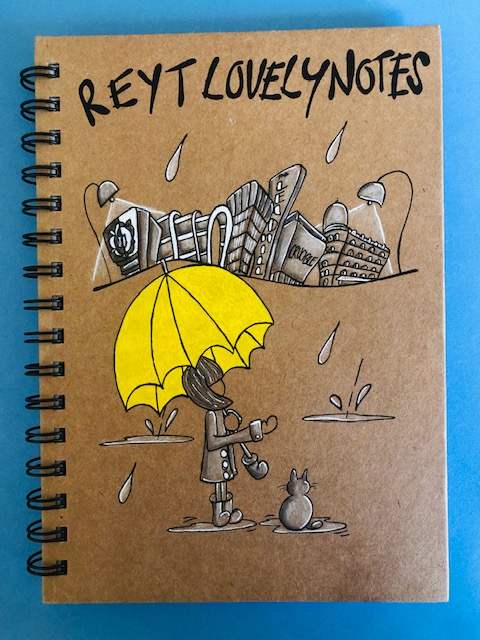 REYT LOVELY NOTES